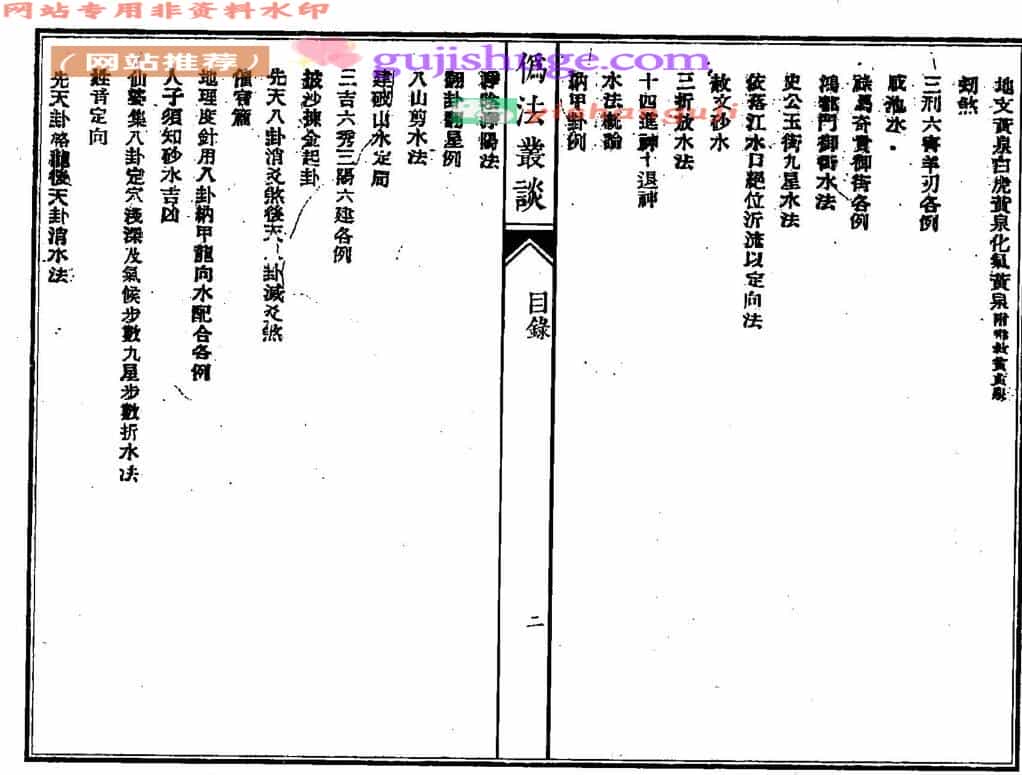 网站专用非资料水印
（网站推荐）
gujishuge.com
yishanguji
地支黃泉白虎黃泉化氣黃泉附
劫煞
三刑六害羊刃各例
咸池水
祿馬奇貴御街各例
鴻都門御街水法
史公玉街九星水法
旅落江水口絕位沂流以定向法
赦文砂水
三折放水法
十四進神十退神
水法概論
納甲卦例
偽法叢談
目錄
二
淨陰淨陽法
翻卦翻星例
八山剪水法
建破山水定局
三吉六秀三陽六建各例
披沙揀金起卦
先天八卦消爻煞後天八卦減爻煞
催官篇
地理度針用八卦納甲龍向水配合各例
人子須知砂水吉凶
仙婆集八卦定穴淺深及氣候步數九星步數折水法
姓音定向
先天卦格龍後天卦消水法